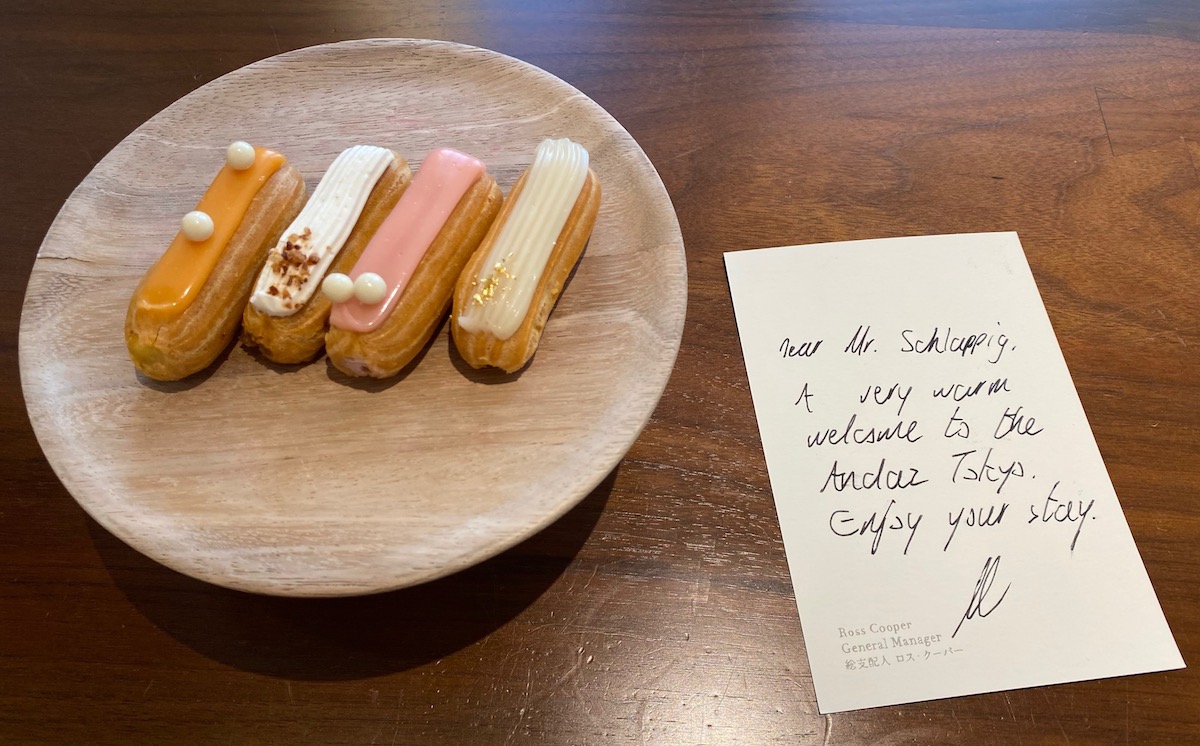 Dear Mr. Schlappig.
A very warm
welcome to the
Andaz Tokyo.
Enjoy your stay.
Ross Cooper
General Manager
総支配人 ロス・クーパー